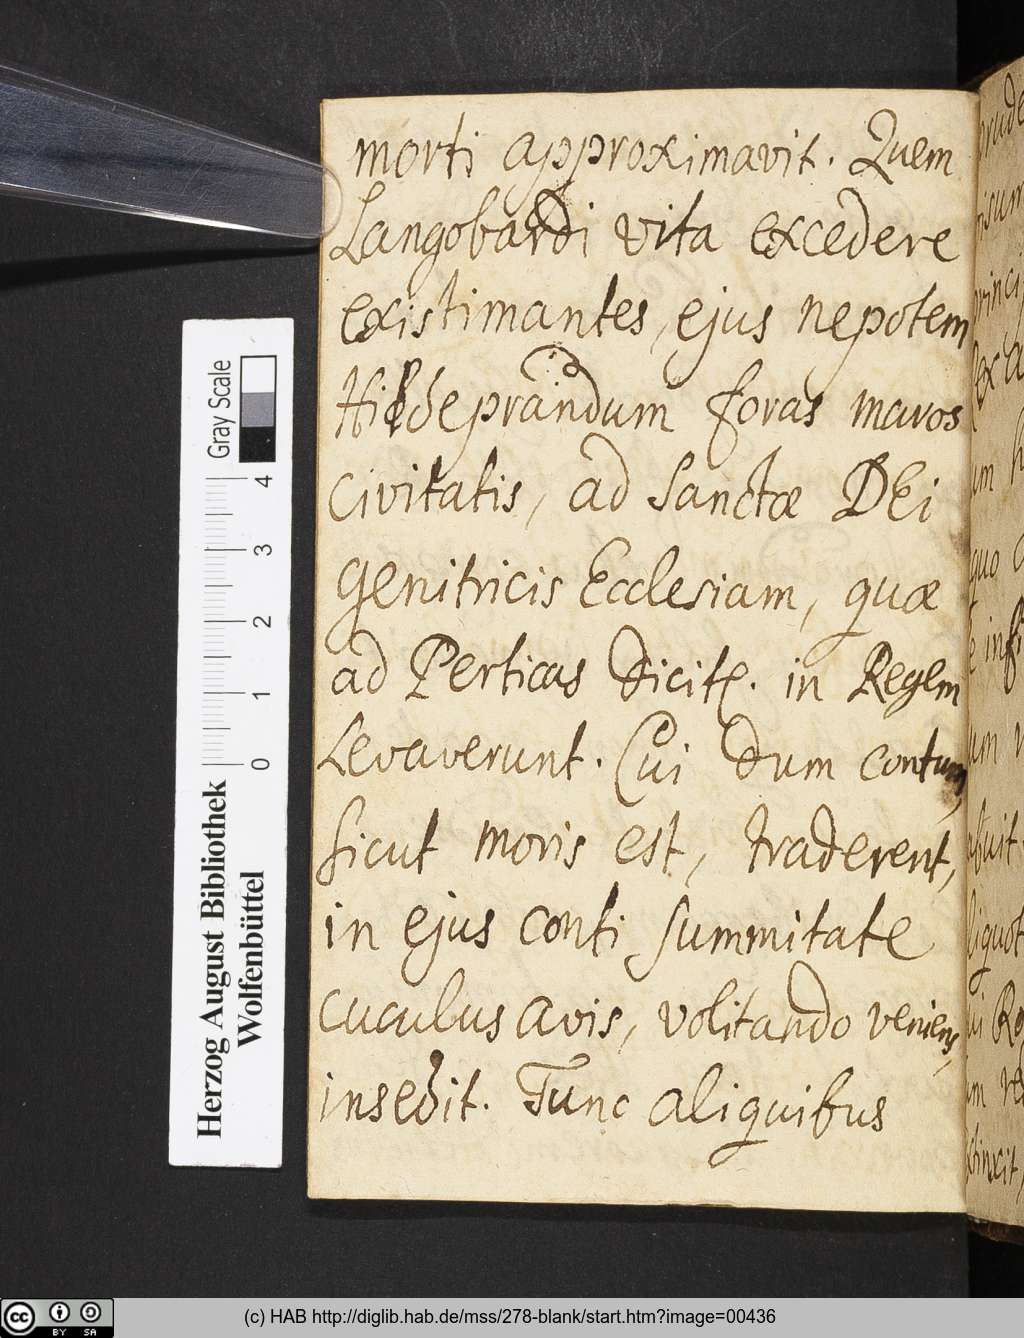 morti approximavit. Quem
Langobardi vita excedere
existimantes, ejus nepotem
Hildeprandum foras muros
civitatis, ad Sanctæ DEi
genitricis Ecclesiam, quæ
ad Perticas dicit͛. in Regem
Levaverunt. Cui dum contum,
sicut moris est, traderent,
in ejus conti summitate
cuculus avis, volitando veniens,
insedit. Tunc aliquibus
Gray Scale
4
3
2
1
0
Herzog August Bibliothek
Wolfenbüttel
cc BY SA
(c) HAB http://diglib.hab.de/mss/278-blank/start.htm?image=00436